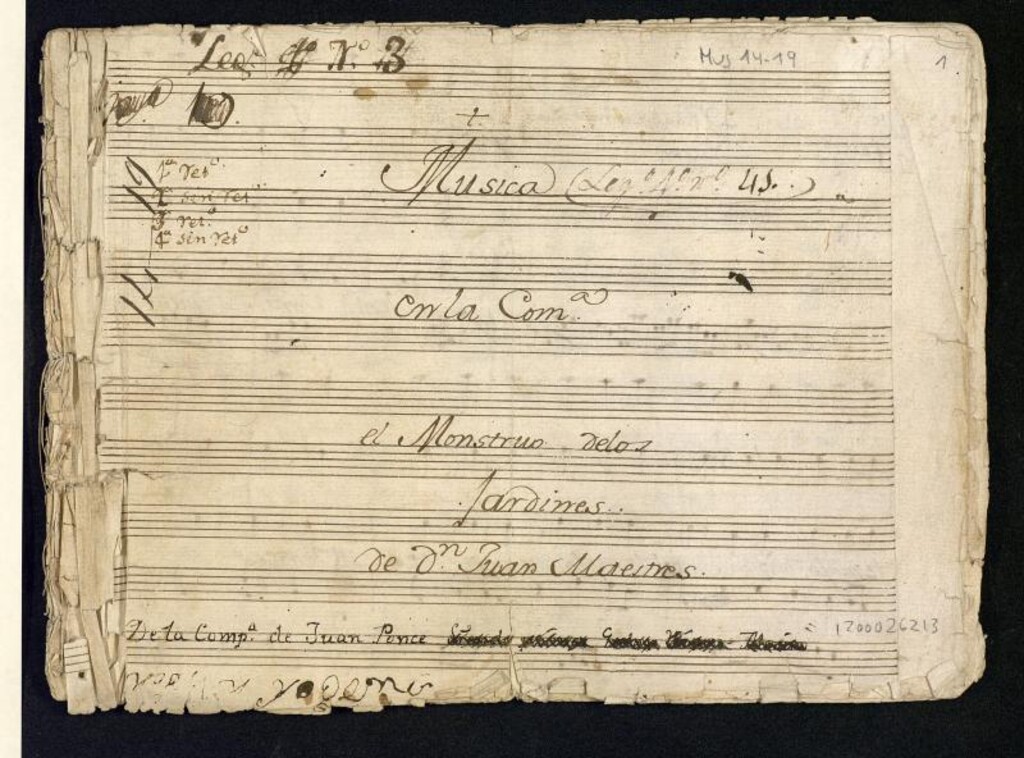 Leg. Nº 3
Mus 14-19
1
t.
Musica (Legº 4º nº 41.)
14-19
1ª retº
2ª sin retº
3ª retº
4ª sin retº
en la Comª
el Monstruo delos
Jardines.
de Dn. Juan Maestres.
De la Compª de Juan Ponce
1200026213